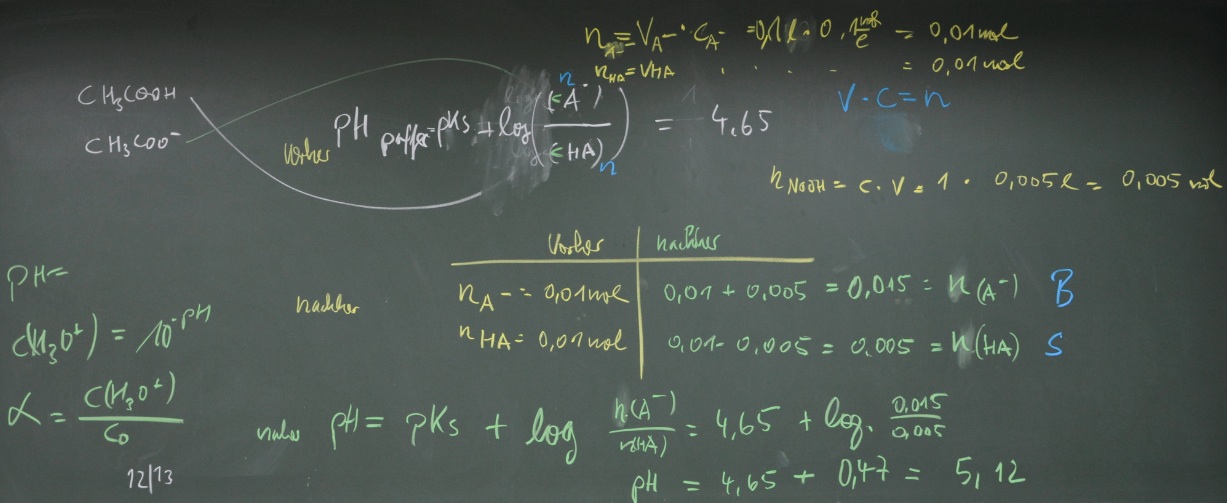 n_A- = V_A- · c_A- = 0,1 l · 0,1 mol/l = 0,01 mol
n_HA = V_HA . . . . = 0,01 mol
CH₃COOH
CH₃COO⁻
vorher pH Puffer = pKs + log (n(A⁻) / n(HA)) = 4,65
V · c = n
n_NaOH = c · V = 1 · 0,005 l = 0,005 mol
vorher | nachher
nachher n_A- = 0,01 mol | 0,01 + 0,005 = 0,015 = n(A⁻) B
n_HA = 0,01 mol | 0,01 - 0,005 = 0,005 = n(HA) S
pH =
c(H₃O⁺) = 10^-pH
α = c(H₃O⁺) / c₀
pH = pKs + log n(A⁻) / n(HA) = 4,65 + log · 0,015 / 0,005
pH = 4,65 + 0,47 = 5,12
12/13